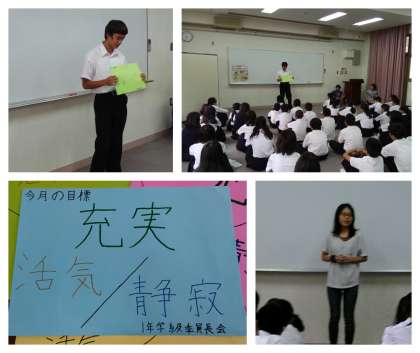 今月の目標
充実
活気／静寂
1年学級委員長会